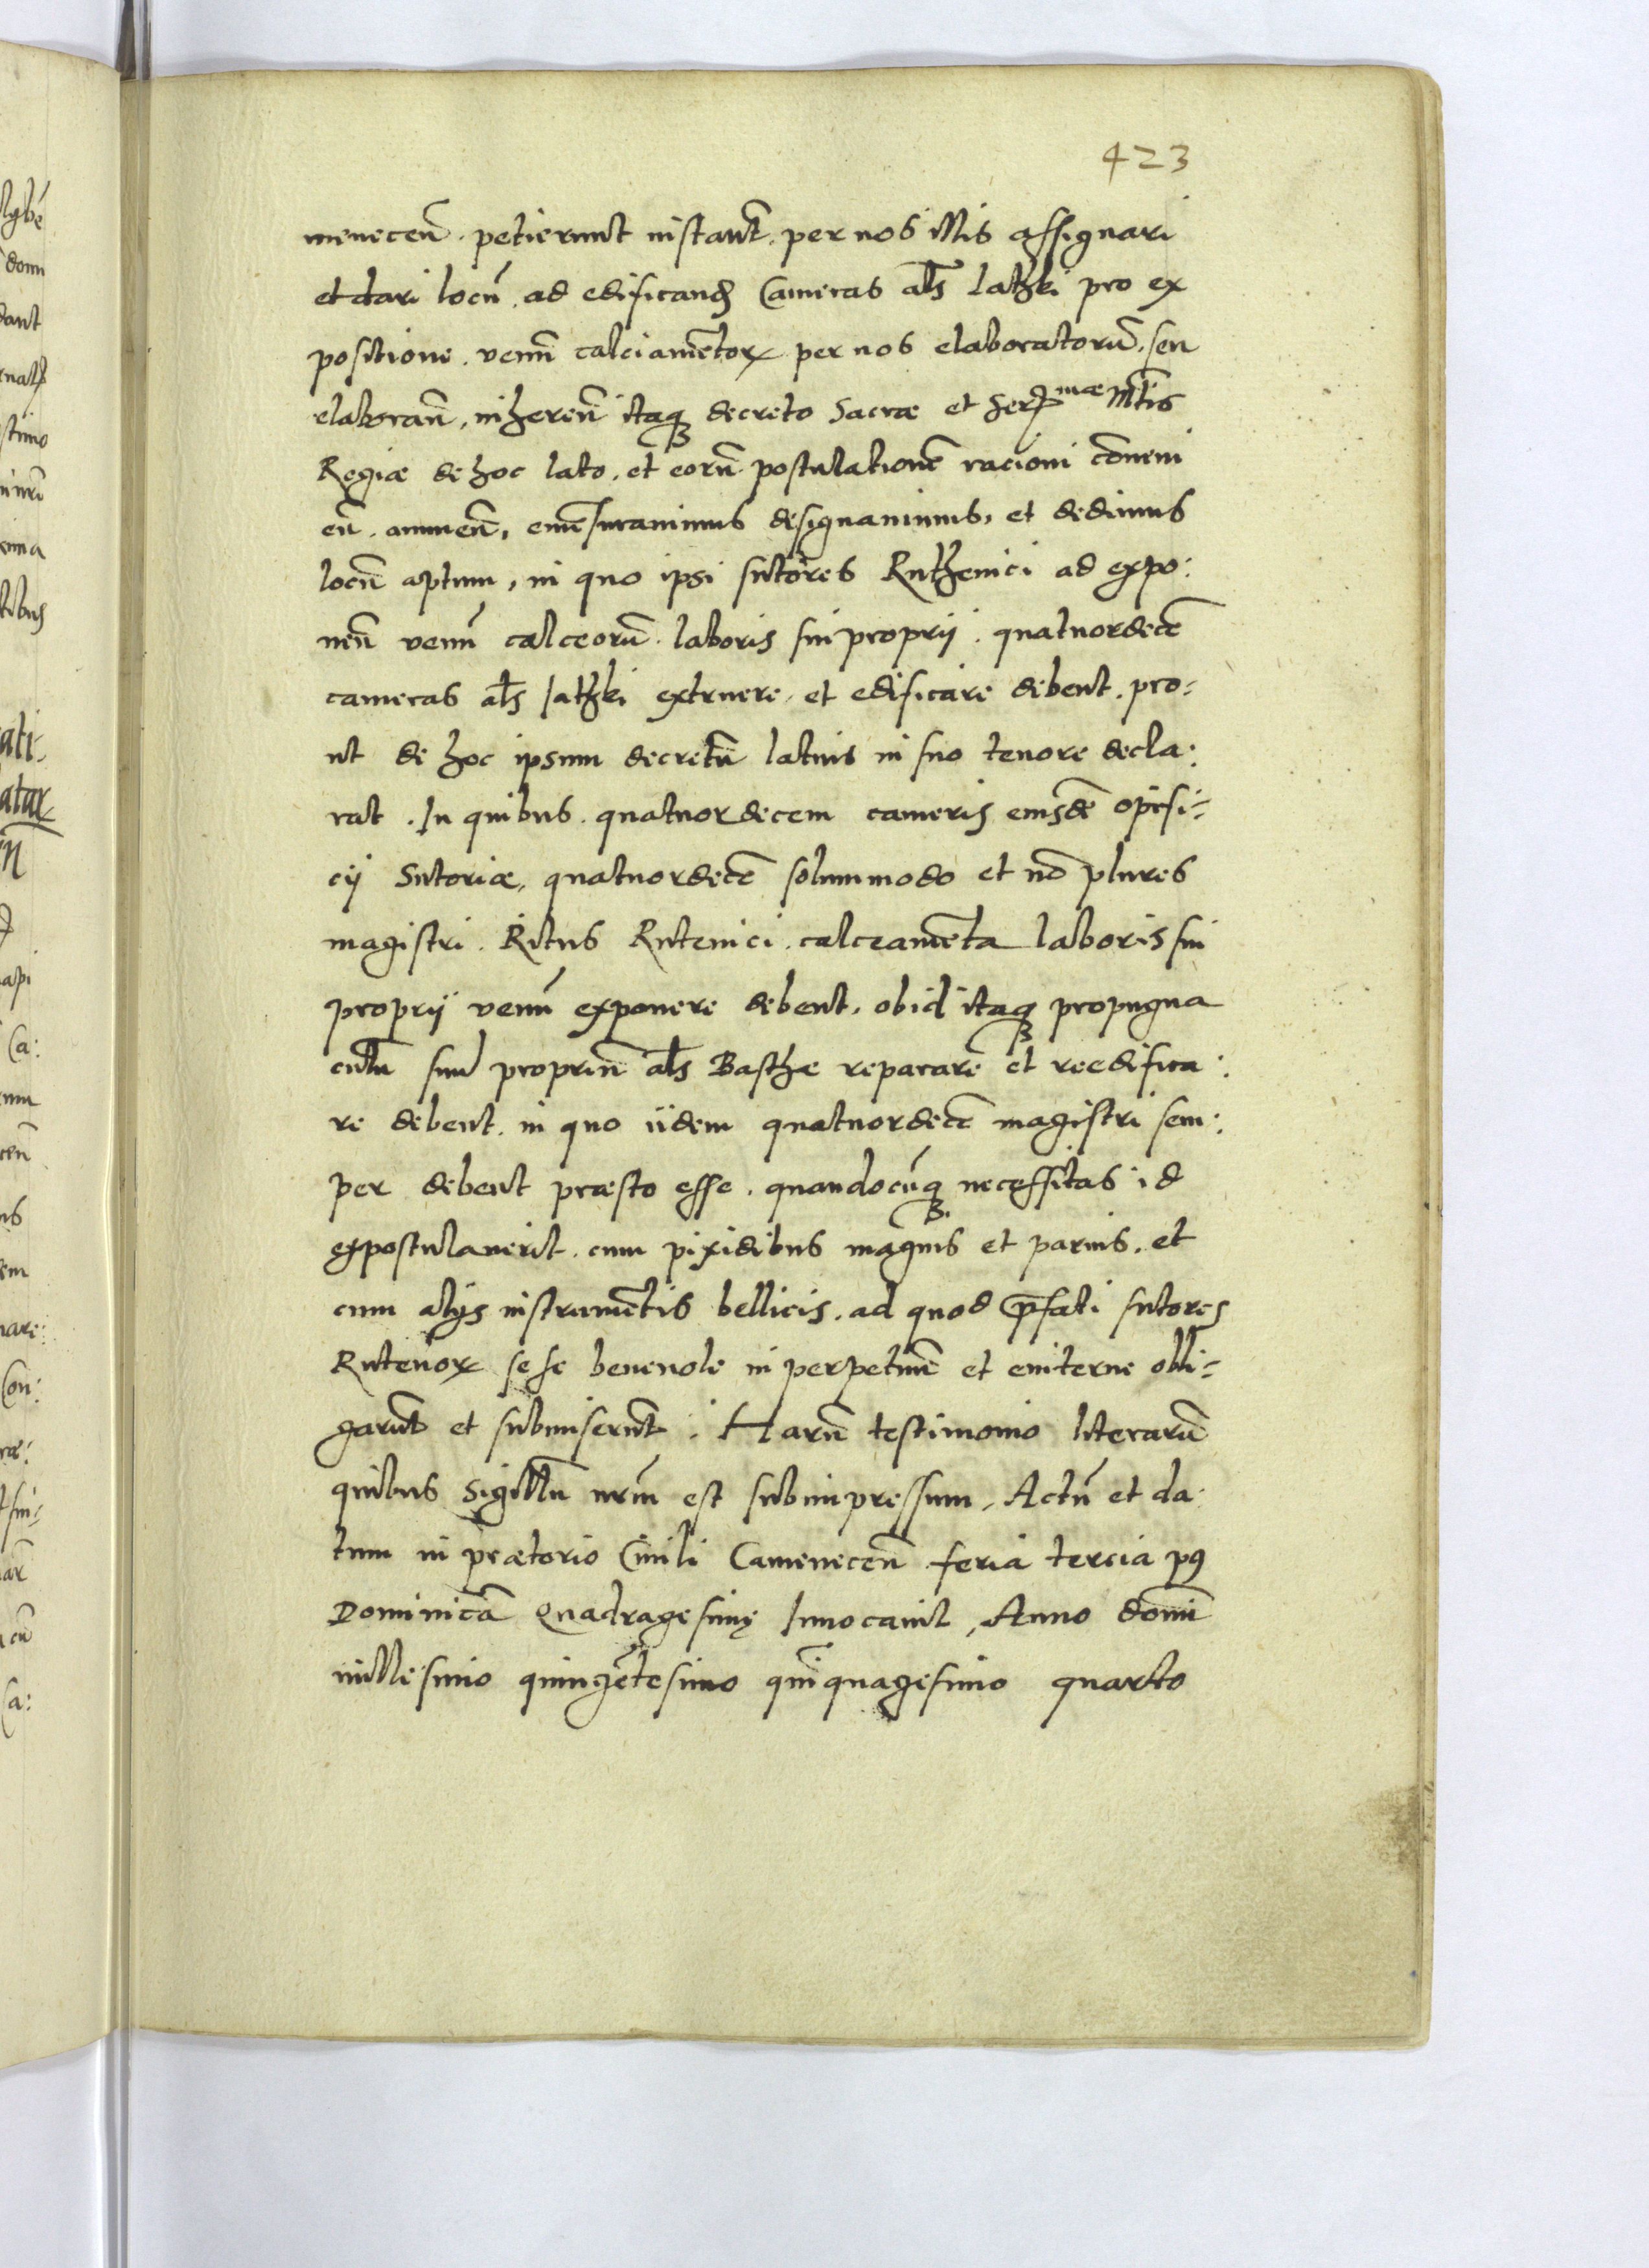 423
menecen̄. petierunt instant̄. per nos illis assignari
et dari locū. ad edificand̄ Cameras al̄s Iatzki pro ex
positione. venū calciamētoꝝ per nos elaboratorū. seu
elaboran̄, inheren̄ itaqꝫ decreto Sacræ et Ser̄mæ Mt̄is
Regiæ de hoc lato. et eorū postulationē racioni cōveni
en̄. annuen̄, emēsuravimus designavimus, et dedimus
locū aptum, in quo ipsi sutores Ruthenici ad expo:
nen̄ venū calceorū laboris sui proprij. quatuordecē
cameras al̄s Iatzki extruere et edificare debent. pro:
ut de hoc ipsum decretū latius in suo tenore decla:
rat. In quibus quatuordecem cameris eiusdē opifi:
cij Sutoriæ, quatuordecē solummodo et nō plures
magistri. Ritus Rutenici. calceamēta laboris sui
proprij venū exponere debent. ob id itaqꝫ propugna
culū suū propriū al̄s Basthe reparare et reedifica:
re debent. in quo iidem quatuordecē magistri sem:
per debent præsto esse. quandocūqꝫ necessitas id
expostulaverit. cum pixidibus magnis et parvis. et
cum alijs instrumētis bellicis. ad quod p̄fati sutores
Rutenoꝝ sese benevole in perpetuū et eviterne obli:
garūt et submiserūt. Harū testimonio literarū
quibus Sigillū nr̄m est subimpressum. Actū et da:
tum in prætorio Civili Camenecen̄ feria tercia pꝰ
Dominicā Quadragesimę Invocavit, Anno domī
millesimo quingētesimo quīquagesimo quarto